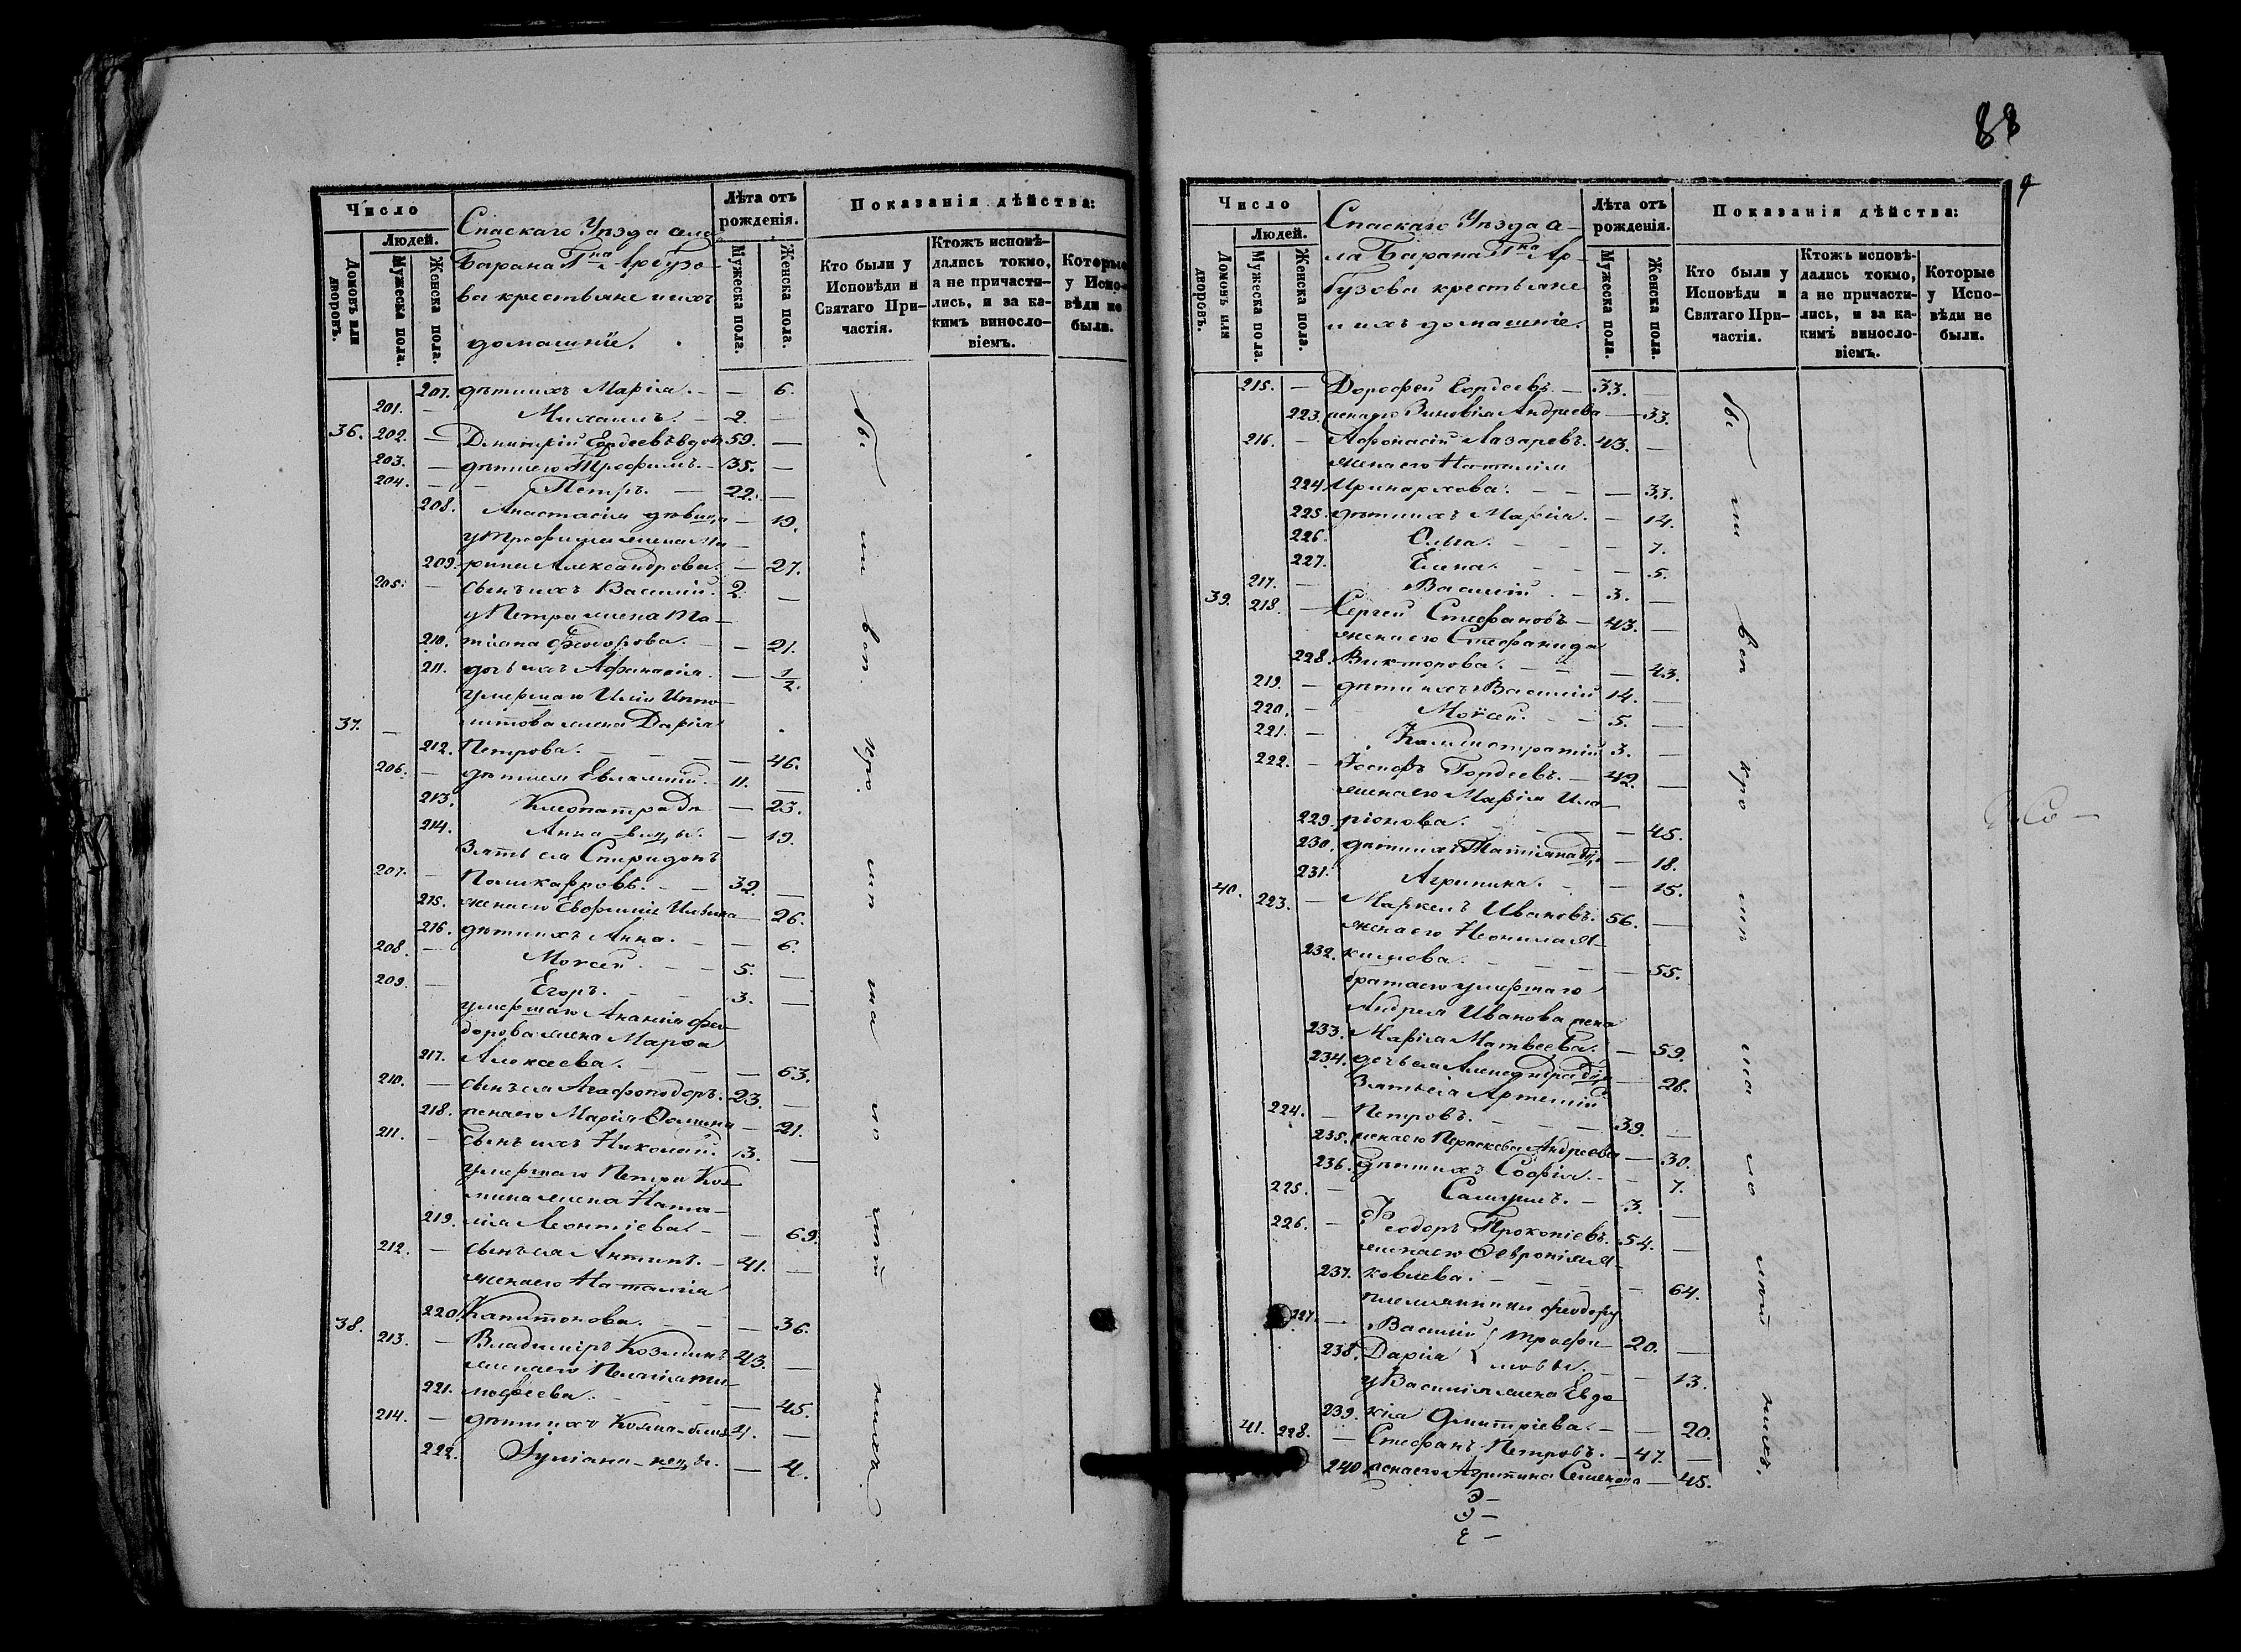 Число
Людей.
Домовъ или дворовъ.
Мужеска пола.
Женска пола.
Спаскаго Уѣзда села
Барана Гна Арбузо-
ва крестьяне и ихъ
домашніе.
Лѣта отъ рожденія.
Мужеска пола.
Женска пола.
Показанія дѣйства:
Кто были у Исповѣди и Святаго Причастія.
Ктожъ исповѣдались токмо, а не причастились, и за какимъ винословіемъ.
Которые у Исповѣди не были.
207. дѣти ихъ Марія. — — 6.
201. — Михаилъ. — 2. —
36. 202. — Димитрій Гордеевъ вдов. 59. —
203. — дѣти его Трофимъ. — 35. —
204. — Петръ. — 22. —
208. Анастасія дѣвица — 19.
у Трофима жена Ма-
209. рина Александрова. — 27.
205. — сынъ ихъ Василій. 2. —
у Петра жена Та-
210. тіана Феодорова. — — 21.
211. дочь ихъ Афанасія. — 1/2.
умершаго Иліи Иппо-
37. — литова жена Дарія
212. Петрова. — — — 46.
206. — дѣти ея Евлампій. — 11. —
213. Клеопатра дѣ- — 23.
214. Анна — вицы. — 19.
Зять ея Спиридонъ
207. — Поликарповъ. — — 32. —
215. жена его Евфимія Ильина — 26.
216. дѣти ихъ Анна. — — 6.
208. — Моѵсей. — — 5. —
209. — Егоръ. — — 3. —
умершаго Ананіи Фео-
дорова жена Марѳа
217. Алексеева. — — — 63.
210. — сынъ ея Агафоподоръ. 23. —
218. жена его Марія Ѳомина — 21.
211. — сынъ ихъ Николай. 3. —
умершаго Петра Коз-
мина жена Ната-
219. лія Леонтіева. — — 69.
212. — сынъ ея Антипъ. — 41. —
жена его Наталія
220. Капитонова. — — — 36.
38. 213. — Владимиръ Козминъ 43. —
жена его Пелагія Ти-
221. моѳеева. — — — 45.
214. — дѣти ихъ Козма — близ- 4. —
222. Іуліана — нецы. — 4.
бы ли въ кро ли на но щий никъ.
88
Число
Людей.
Домовъ или дворовъ.
Мужеска пола.
Женска пола.
Спаскаго Уѣзда се-
ла Барана Гна Ар-
бузова крестьяне
и ихъ домашніе.
Лѣта отъ рожденія.
Мужеска пола.
Женска пола.
Показанія дѣйства:
Кто были у Исповѣди и Святаго Причастія.
Ктожъ исповѣдались токмо, а не причастились, и за какимъ винословіемъ.
Которые у Исповѣди не были.
215. — Дорофей Гордеевъ. — 33. —
223. жена его Зиновія Андреева — 33.
216. — Афонасій Лазаревъ. 43. —
жена его Наталія
224. Иринархова. — — — 33.
225. дѣти ихъ Марія. — 14.
226. Ольга. — — — 7.
227. Елена. — — — 5.
217. — Василій. — 3. —
39. 218. — Сергей Стефановъ — 43. —
жена его Стефанида
228. Викторова. — — — 43.
219. — дѣти ихъ Василій 14. —
220. — Моѵсей. — — 5. —
221. — Каллистратій 3. —
222. — Іосифъ Гордеевъ. — 42. —
жена его Марія Ила-
229. ріонова. — — — 45.
230. дѣти ихъ Татіана дѣв. — 18.
231. Агрипина. — — 15.
40. 223. — Маркелъ Ивановъ. 56. —
жена его Неонила Я-
232. кимова. — — — 55.
брата его умершаго
Андрея Иванова жена
233. Марія Матвеева. — 59.
234. дочь ея Александра дѣв. — 28.
Зять ея Артемій
224. — Петровъ. — — — 39. —
235. жена его Параскева Андреева — 30.
236. дѣти ихъ Софія. — — 7.
225. — Самуилъ. — 3. —
226. — Ѳеодоръ Прокопіевъ. 54. —
жена его Февронія Я-
237. ковлева. — — — 64.
племянники Феодору
227. — Василій } Трофи- 20. —
238. Дарія } мовы. — — 13.
у Василія жена Евдо-
239. кія Дмитріева. — — 20.
41. 228. — Стефанъ Петровъ. — 47. —
240. жена его Агрипина Семенова — 45.